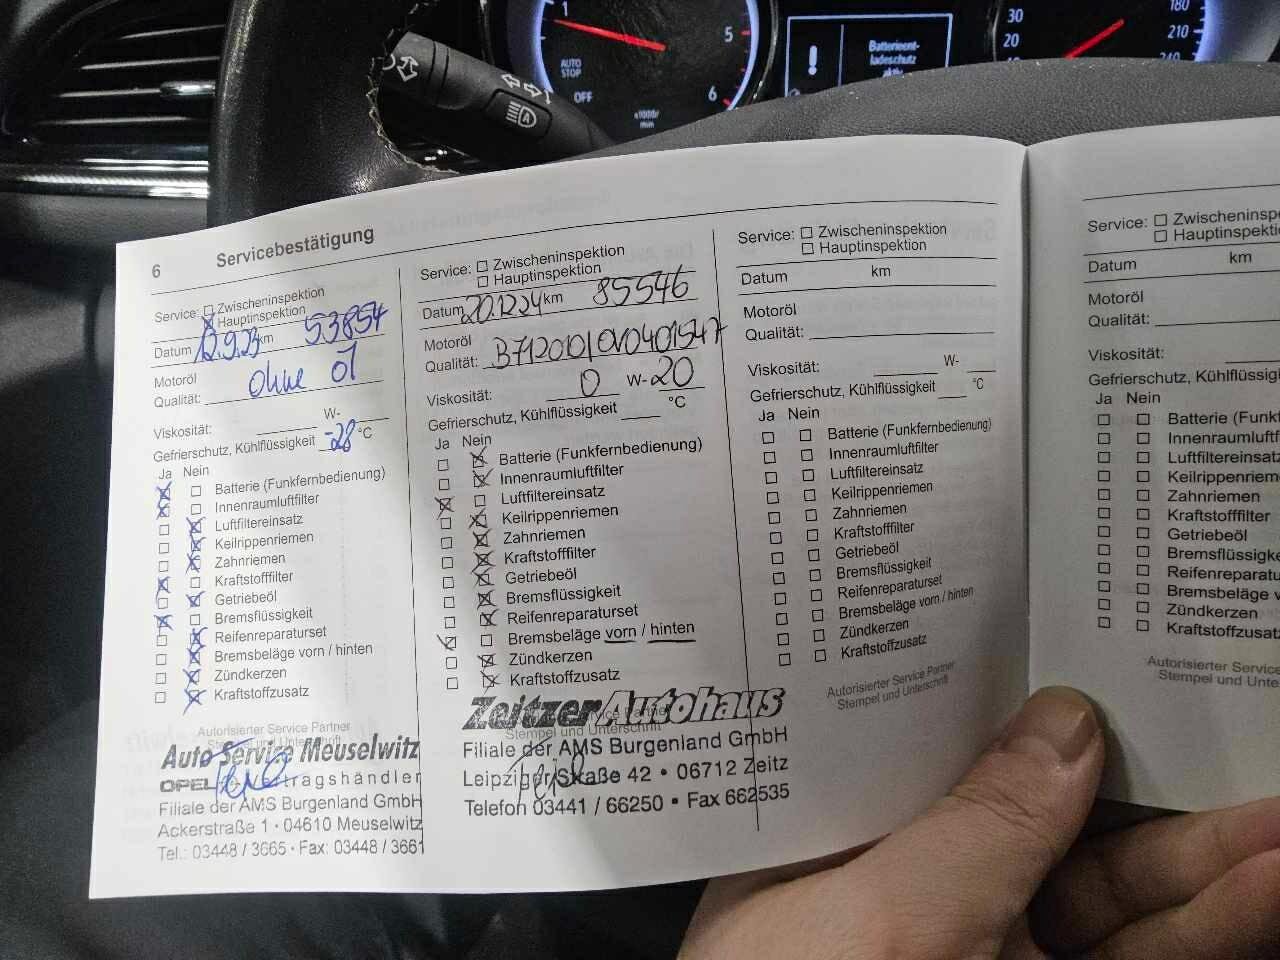 1
5
6
AUTO
STOP
OFF
x1000r/
min
A
!
Batterieent-
ladeschutz
aktiv
30
20
180
210
240
6
Servicebestätigung
Service: Zwischeninspektion
Hauptinspektion
Datum 12.9.23 km 53854
Motoröl
Qualität: Ohne Öl
Viskosität: W-
Gefrierschutz, Kühlflüssigkeit -28 °C
Ja Nein
Batterie (Funkfernbedienung)
Innenraumluftfilter
Luftfiltereinsatz
Keilrippenriemen
Zahnriemen
Kraftstofffilter
Getriebeöl
Bremsflüssigkeit
Reifenreparaturset
Bremsbeläge vorn / hinten
Zündkerzen
Kraftstoffzusatz
Autorisierter Service Partner
Stempel und Unterschrift
Auto Service Meuselwitz
OPEL
Filiale der AMS Burgenland GmbH
Ackerstraße 1 · 04610 Meuselwitz
Tel.: 03448 / 3665 · Fax: 03448 / 3661
Service: Zwischeninspektion
Hauptinspektion
Datum 20.12.24 km 85546
Motoröl
Qualität: B712010/0V0401547
Viskosität: 0 W-20
Gefrierschutz, Kühlflüssigkeit °C
Ja Nein
Batterie (Funkfernbedienung)
Innenraumluftfilter
Luftfiltereinsatz
Keilrippenriemen
Zahnriemen
Kraftstofffilter
Getriebeöl
Bremsflüssigkeit
Reifenreparaturset
Bremsbeläge vorn / hinten
Zündkerzen
Kraftstoffzusatz
Zeitzer Autohaus
Stempel und Unterschrift
Filiale der AMS Burgenland GmbH
Leipziger Straße 42 • 06712 Zeitz
Telefon 03441 / 66250 • Fax 662535
Service: Zwischeninspektion
Hauptinspektion
Datum km
Motoröl
Qualität:
Viskosität: W-
Gefrierschutz, Kühlflüssigkeit °C
Ja Nein
Batterie (Funkfernbedienung)
Innenraumluftfilter
Luftfiltereinsatz
Keilrippenriemen
Zahnriemen
Kraftstofffilter
Getriebeöl
Bremsflüssigkeit
Reifenreparaturset
Bremsbeläge vorn / hinten
Zündkerzen
Kraftstoffzusatz
Autorisierter Service Partner
Stempel und Unterschrift
Service: Zwischeninspe
Hauptinspekti
Datum km
Motoröl
Qualität:
Viskosität:
Gefrierschutz, Kühlflüssigk
Ja Nein
Batterie (Funkf
Innenraumluftf
Luftfiltereinsatz
Keilrippenriem
Zahnriemen
Kraftstofffilter
Getriebeöl
Bremsflüssigke
Reifenreparatu
Bremsbeläge v
Zündkerzen
Kraftstoffzusat
Autorisierter Service
Stempel und Unters